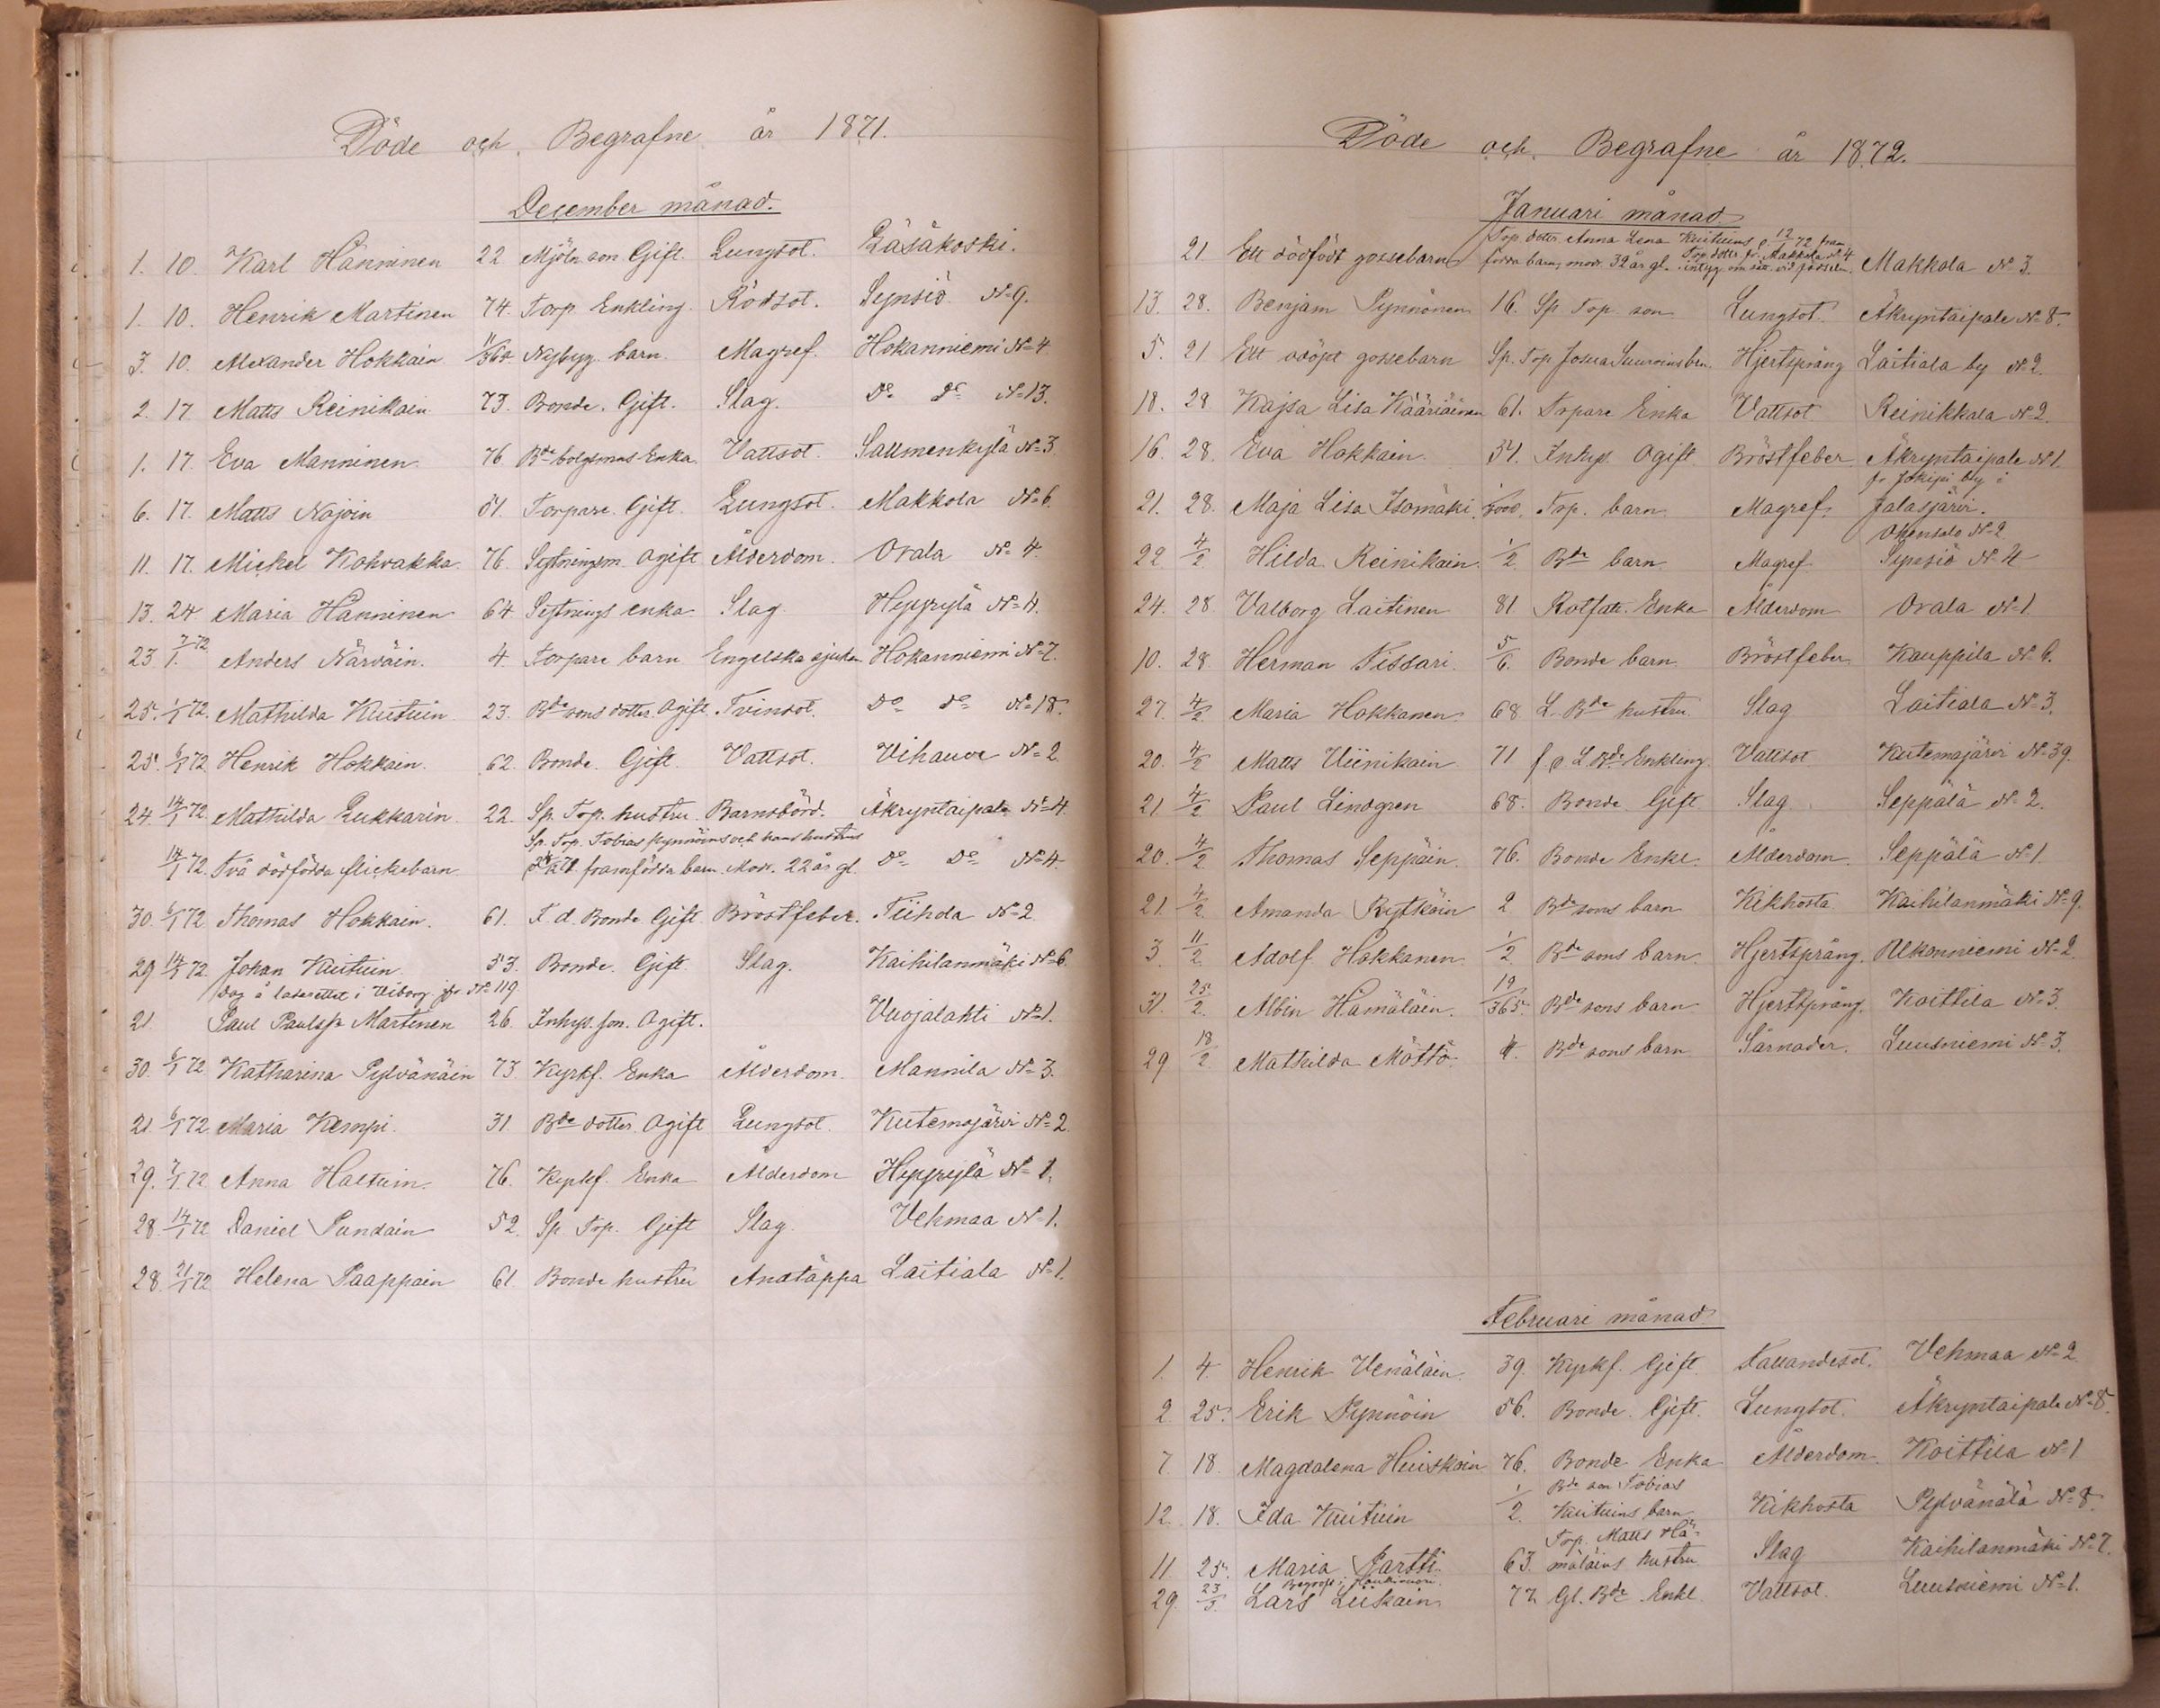 Döde och Begrafne år 1871.
December månad.
1. 10. Karl Hänninen 22 Mjöln. son. Gift. Lungsot. Läsäkoski.
1. 10. Henrik Martinen 74. Torp. Enkling. Rödsot. Synsiö №9.
3. 10. Alexander Hokkain 11/365 Nybyg. barn. Magref. Hokanniemi №4
2. 17. Matts Reinikain 73. Bonde. Gift. Slag. Do Do №13.
1. 17. Eva Manninen 76 Bde bolgsmans Enka. Vattsot. Salmenkylä №3
6. 17. Matts Nojoin 51. Torpare. Gift. Lungsot. Makkola №6.
11. 17. Mickel Kokvakka 76. Sytningsm. Ogift Ålderdom. Orala №4.
13. 24. Maria Hänninen 64. Sytnings enka Slag. Hypyrylä №4.
23 7/1 72 Anders Närväin. 4 Torpare barn Engelska sjukan Hokanniemi №7.
25. 1/1 72. Mathilda Kuituin 23. Bde sons dotter. Ogift Tvinsot. Do Do №18.
25. 6/1 72 Henrik Hokkain. 62. Bonde. Gift. Vattsot. Vihavor №2.
24. 14/1 72. Mathilda Pukkarin 22. Sp. Torp. hustru Barnsbörd. Äkryntaipale №4.
Sp. Torp. Tobias Pynnöins och hans hustrus
14/1 72. Två dödfödda flickebarn framfödda barn. Mod. 22 år gl. Do Do №4.
30. 6/1 72 Thomas Hokkain. 61. F. d. Bonde Gift. Bröstfeber. Tiihola №2
29 14/1 72 Johan Kuituin 53. Bonde. Gift. Slag. Kaihilanmäki №6.
dog å lasarettet i Viborg №119
21. Paul Paulss. Martinen 26. Inhys. son. Ogift. Vuojalahti №1.
30. 6/1 72 Katharina Pylvänäin 73 Kyrkf. Enka Ålderdom. Mannila №3.
21. 6/1 72 Maria Kempi. 31. Bde dotter. Ogift Lungsot. Kutemajärvi №2.
29. 7/1 72 Anna Haltuin. 76. Kyrkf. Enka Ålderdom Hypyrylä №1.
28. 14/1 72 Daniel Pundain 52. Sp. Torp. Gift Slag. Vehmaa №1.
28. 21/1 72 Helena Paappain 61. Bonde hustru Andtäppa Laitiala №1.
Döde och Begrafne år 1872.
Januari månad
Torp. dotter Anna Lena Kuituins 12/1 72 fram
21. Ett dödfödt gossebarn födda barn, mod. 32 år gl. Makkola №3.
13. 28. Benjam Pynnönen 16. Sp Torp son Lungsot. Äkryntaipale №8.
5. 21 Ett odöpt gossebarn Sp. Torp Hjertspräng Laitiala by №2.
18. 28 Kajsa Lisa Kääriäinen 61. Torpare Enka Vattsot Reinikkala №2
16. 28. Eva Hokkain. 54. Inhys. Ogift Bröstfeber Äkryntaipale №1.
fr Jokipi by i
21. 28. Maja Lisa Isomäki. Torp. barn. Magref. Jalasjärvi.
Okensalo №2
22 4/2 Hilda Reinikain 1/2 Bde barn Magref. Synsiö №4
24. 28. Valborg Laitinen 81. Rotfatt. Enka Ålderdom Orala №1
10. 28. Herman Nissari. 5/6. Bonde barn Bröstfeber Kauppila №6.
27. 4/2 Maria Hokkanen. 68 L. Bde hustru. Slag Laitiala №3.
20. 4/2 Matts Viinikain 71 f. d. L. Bde Enkling. Vattsot Kutemajärvi №39.
21 4/2 Paul Lindgren 68. Bonde. Gift Slag. Seppälä №2.
20. 4/2 Thomas Seppäin. 76. Bonde Enkl. Ålderdom. Seppälä №1.
21. 4/2. Amanda Rytköin 2 Bde sons barn Kikhosta Kaihilanmäki №9.
3 11/2 Adolf Hokkanen. 1/2 Bde sons barn. Hjertspräng. Ukonniemi №2.
31. 25/2. Albin Hämäläin. 12/365. Bde sons barn Hjertspräng. Koittila №3.
29 18/2. Mathilda Möttö 4. Bde sons barn Sårnader. Luusniemi №3.
Februari månad
1. 4. Henrik Venäläin. 39. Kyrkf. Gift. Fallandesot. Vehmaa №2
2 25. Erik Pynnöin 56. Bonde. Gift. Lungsot. Äkryntaipale №8.
7. 18. Magdalena Huiskoin 76. Bonde Enka Ålderdom. Koittila №1
Bde son Tobias
12. 18. Ida Kuituin 1/2. Kuituins barn Kikhosta Pylvänälä №8.
Torp. Matts Hä-
11 25. Maria Partti 63. mäläins hustru Slag Kaihilanmäki №7.
Begrafd i
29. 23/3. Lars Liiskain 77 Gl. Bde Enkl. Vattsot. Luusniemi №1.